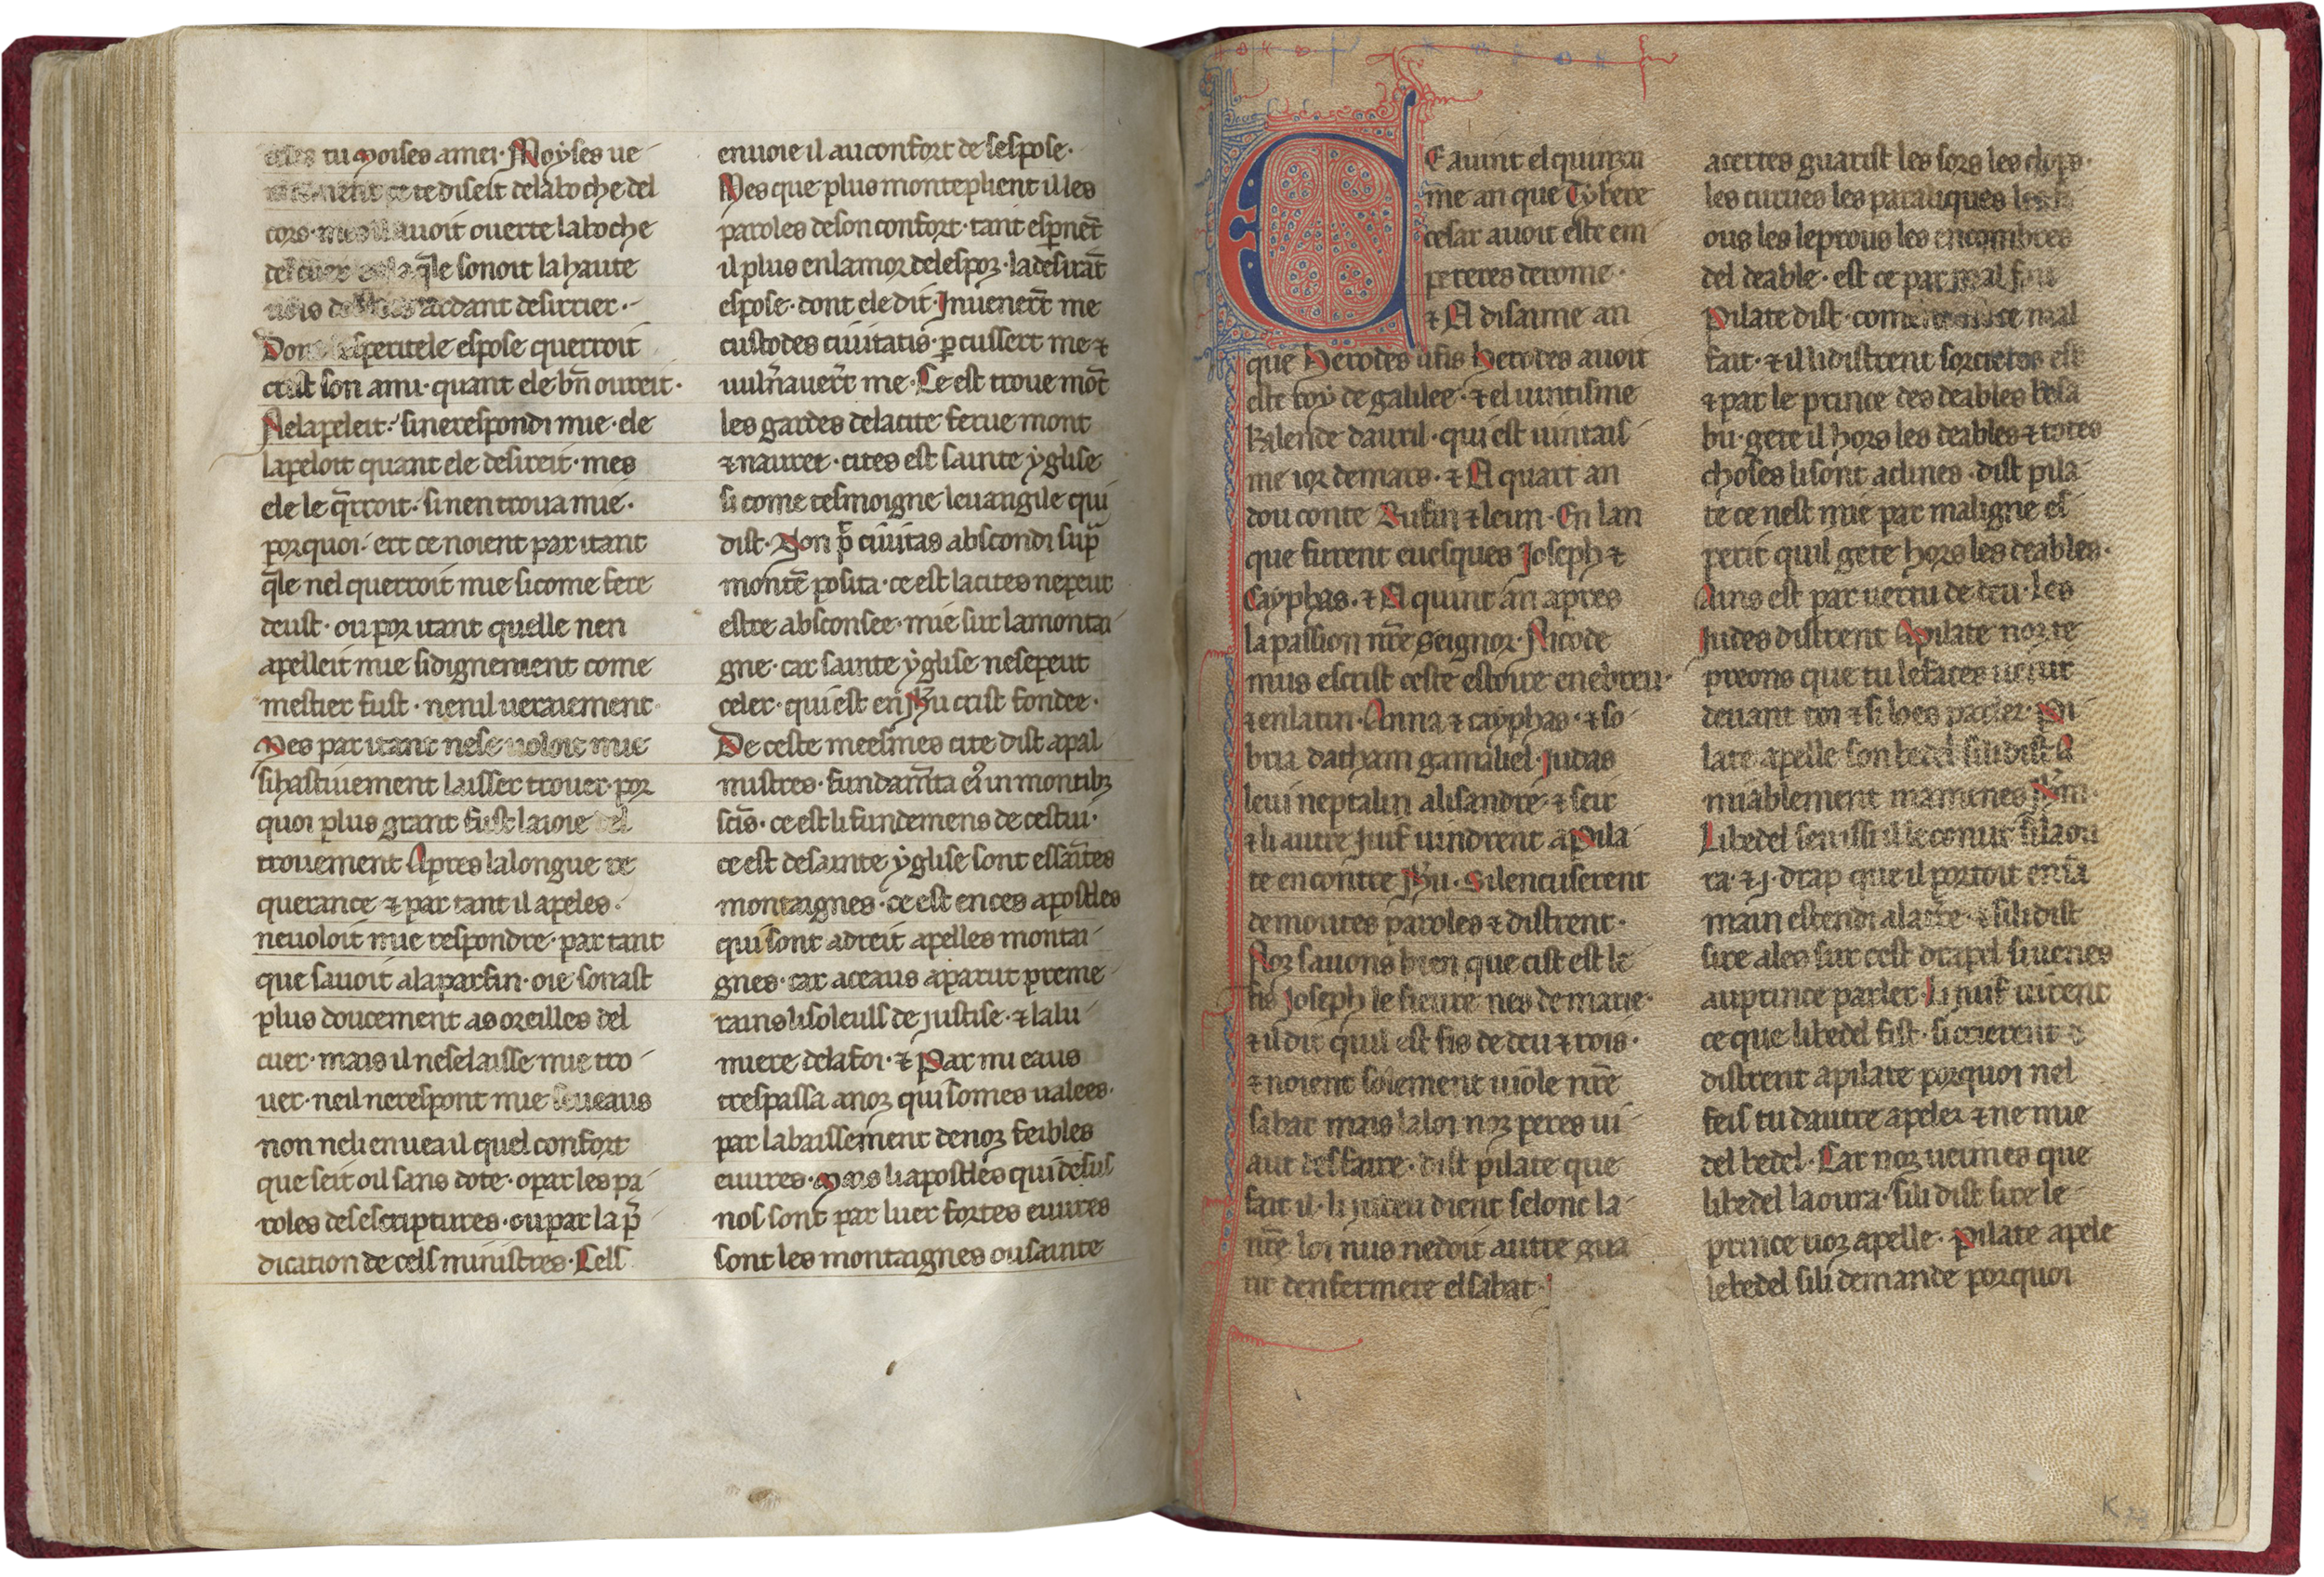 tu moises a mei· Moyses ue
te diseit de la boche del
cors· auoit ouerte la boche
del cuer q̄le sonoit la haute
uois ardant desirrier·
Dont esperitele espose querroit
crist son ami· quant ele bn̄ oureit·
Nel apeleit· si ne respondi mie· ele
lapeloit quant ele desireit· mes
ele le q̄rroit· si nen troua mie·
por quoi· ert ce noient par itant
q̄le nel querroit mie si come fere
deust· ou por itant quelle nen
apelleit mie si dignement come
mestier fust· nenil ueraiement·
Mes par itant ne se uoloit mie
si hastiuement laisser trouer· por
quoi plus grant fust la ioie del
trouement Apres la longue re
querance ⁊ par tant il apeles·
ne uoloit mie respondre· par tant
que sauoit a la parfin· oie sonast
plus doucement as oreilles del
cuer· mais il ne se laisse mie tro
uer· ne il ne respont mie
non ne li enuea il quel confort
que seit oil sans dote· o par les pa
roles de sescriptures· ou par la p̄
dication de cels ministres· Cels
enuoie il au confort de sespose·
Mes que plus monteplient illes
paroles de son confort· tant esp̄nēt
il plus en lamor de lespoz· la desirāt
espose· dont ele dit· Inuenerūt me
custodes ciuitatis· ꝑcussert me ⁊
uuln̄auert me· Ce est troue mōt
les gardes de la cite ferue mont
⁊ nauret· cites est sainte yglise
si come tesmoigne leuangile qui
dist· Non p̄ ciuitas abscondi sup̄
montē posita· ce est la cites ne peut
estre absconsee· mie sur la montai
gne· car sainte yglise ne se peut
celer· qui est en Jħu crist fondee·
De ceste meesmes cite dist apal
mistres· fundam̄ta eı᷒ in montibꝫ
scīs· ce est li fundemens de cestui·
ce est de sainte yglise sont es sāntes
montaignes· ce est en ces apostles
qui sont a dreit apelles montai
gnes· car a ceaus aparut preme
rains li soleuls de justise· ⁊ la lu
miere de la foi· ⁊ Par mi eaus
trespassa a noz qui somes ualees·
par labaissement de noz feibles
euures· Mais li apostles qui de sus
nos sont par luer fortes euures
sont les montaignes ou sainte
CE auint el quinzai
me an que Tybere
cesar auoit este em
pereres de rome·
⁊ El disaime an
que Herodes li fis Herodes auoit
este roy de galilee· ⁊ el uintisme
kalende dauril· qui est uintais
me ior de mars· ⁊ El quart an
dou conte Rufin ⁊ leun· En lan
que furent euesques Joseph ⁊
Cayphas· ⁊ El quint an apres
la passion nr̄e Seignor· Nicode
mus escrist ceste estoire en ebreu·
⁊ en latin· Anna ⁊ cayphas· ⁊ so
bria datham gamaliel· Judas
leui neptalin alisandre· ⁊ seir
⁊ li autre Juif uindrent a Pila
te encontre Jħu· Si lencuserent
de moutes paroles ⁊ distrent·
Noz sauons bien que cist est le
fis Joseph le fieure nes de marie·
⁊ il dit quil est fis de deu ⁊ rois·
⁊ noient solement uiole nr̄e
sabat mais la loi noz peres ui
aut desfaire· dist pilate que
fait il· li jueu dient selonc la
nr̄e loi nus ne doit autre gua
rir denfermete el sabat·
acertes guarist les sors les clops·
les curues les paraliques
ous les leprous les encombres
del deable· est ce par mal
Pilate dist· coment mal
fait· ⁊ il li distrent sorcieres est
⁊ par le prince des deables belsa
bu· gete il hors les deables ⁊ totes
choses li sont aclines· dist pila
te ce nest mie par maligne es
perit quil gete hors les deables·
Ains est par uertu de deu· Les
Judes distrent A pilate noz te
preons que tu le faces uenir
deuant toi ⁊ si loes parler· Pi
late apelle son bedel si li dist A
miablement mamenes Jħm·
Li bedel sen issi il le conut si laou
ra· ⁊ ·j· drap que il portoit en sa
main estendi a la tr̄re· ⁊ si li dist
sire ales sur cest drapel si uenes
au prince parler· Li juif uirent
ce que li bedel fist· si crierent ⁊
distrent a pilate por quoi nel
feis tu dautre apeler ⁊ ne mie
del bedel· Car noz ueimes que
li bedel laoura· si li dist sire le
prince uoz apelle· Pilate apele
le bedel si li demande por quoi